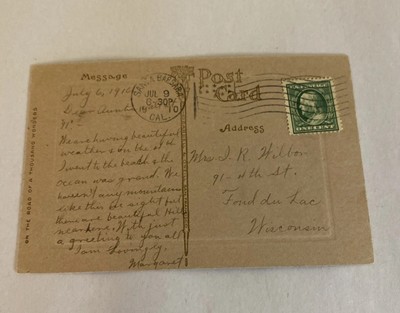 Message
July 6, 1910
Dear Aunt
We are having beautiful
weather & on the 4th
I went to the beach & the
ocean was grand. We
haven't any mountains
like this in sight but
there are beautiful hills
near here. With just
a greeting to you all
I am lovingly
Margaret
ON THE ROAD OF A THOUSAND WONDERS
SANTA BARBARA
JUL 9
6-30P
1910
CAL.
Post
Card
ONE CENT
Address
Mrs J. R. Wilbor
91-4th St.
Fond du Lac
Wisconsin